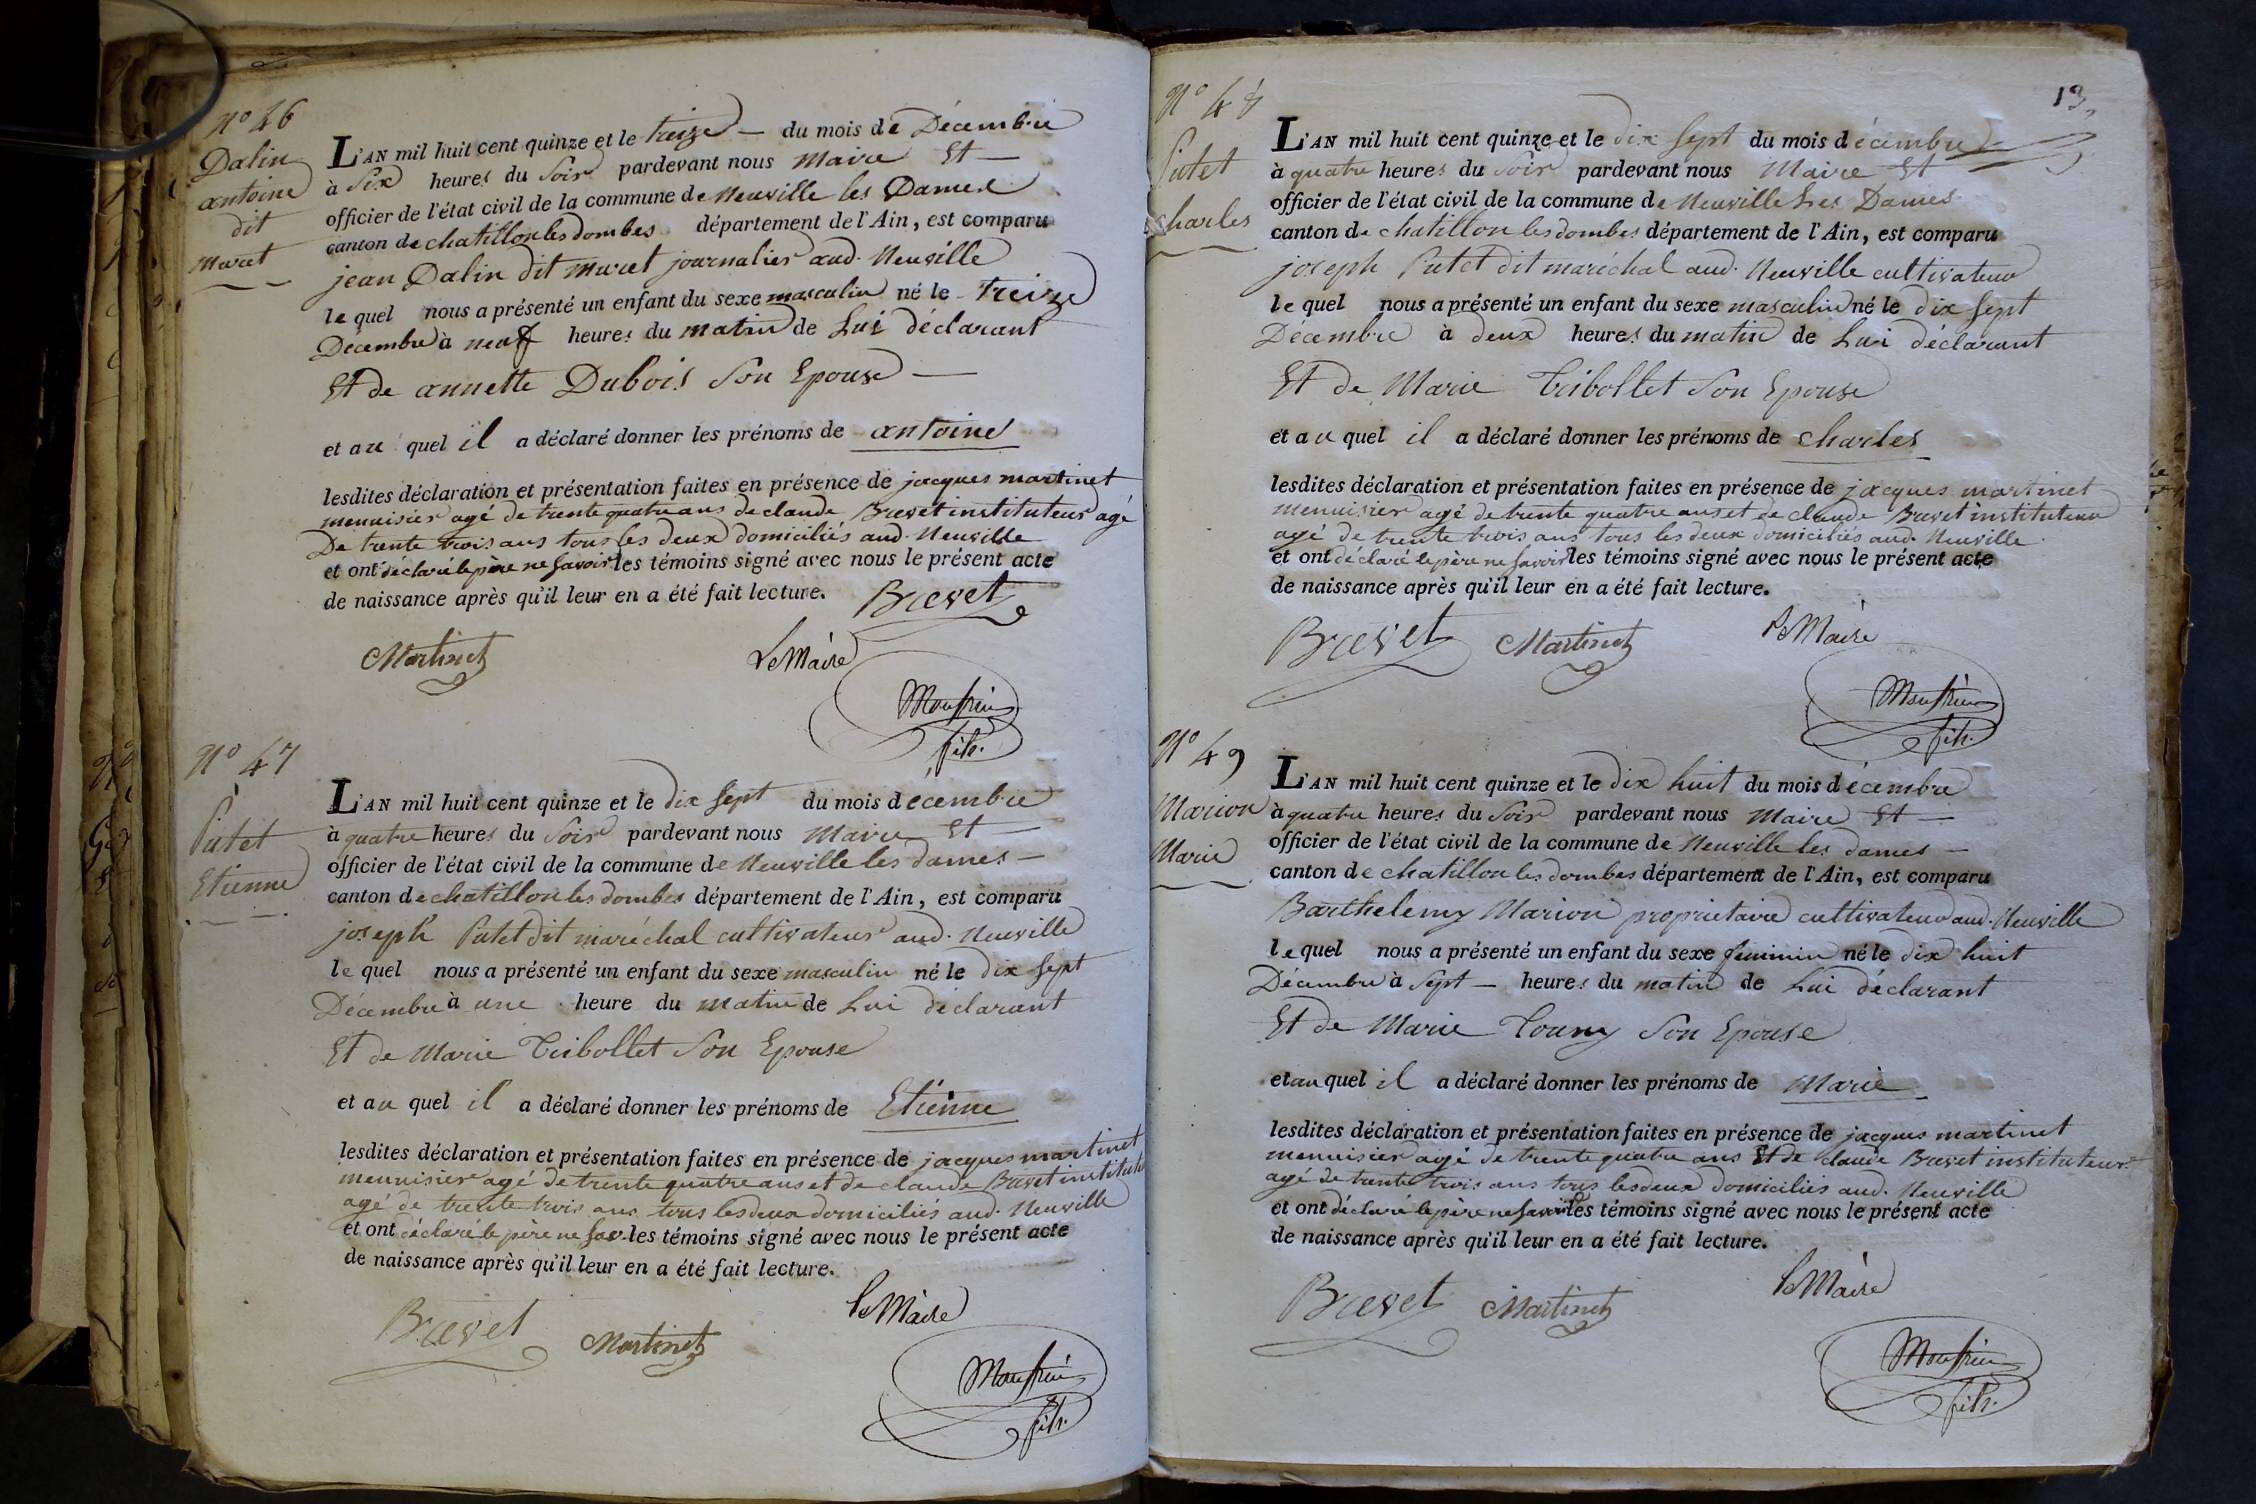 N° 46
Dalin
antoine
dit
muret
L'AN mil huit cent quinze et le treize — du mois de Décembre
à Six heures du Soir pardevant nous Maire Et —
officier de l'état civil de la commune de Neuville les Dames
canton de chatillon les dombes département de l'Ain, est comparu
jean Dalin dit muret journalier aud. Neuville
le quel nous a présenté un enfant du sexe masculin né le treize
Decembre à neuf heures du matin de Lui déclarant
Et de annette Dubois Son Epouse —
et au quel il a déclaré donner les prénoms de antoine
lesdites déclaration et présentation faites en présence de jacques martinet
menuisier agé de trente quatre ans de claude Brevet instituteur agé
De trente trois ans tous les deux domiciliés aud. Neuville
et ont déclaré le père ne savoir les témoins signé avec nous le présent acte
de naissance après qu'il leur en a été fait lecture. Brevet
Martinet Le Maire
Monfrin
fils.
N° 47
Putet
Etienne
L'AN mil huit cent quinze et le dix Sept du mois décembre
à quatre heures du Soir pardevant nous Maire Et —
officier de l'état civil de la commune de Neuville les dames —
canton de chatillon les dombes département de l'Ain, est comparu
joseph Putet dit maréchal cultivateur aud. Neuville
le quel nous a présenté un enfant du sexe masculin né le dix Sept
Décembre à une heure du matin de Lui déclarant
Et de Marie Tribollet Son Epouse
et au quel il a déclaré donner les prénoms de Etienne
lesdites déclaration et présentation faites en présence de jacques martinet
menuisier agé de trente quatre ans et de claude Brevet institut
agé de trente trois ans tous les deux domiciliés aud. Neuville
et ont déclaré le père ne sav. les témoins signé avec nous le présent acte
de naissance après qu'il leur en a été fait lecture.
Brevet Martinet Le Maire
Monfrin
fils.
13
N° 48
Putet
charles
L'AN mil huit cent quinze et le dix Sept du mois décembre
à quatre heures du Soir pardevant nous Maire Et
officier de l'état civil de la commune de Neuville Les Dames
canton de chatillon les dombes département de l'Ain, est comparu
joseph Putet dit maréchal aud. Neuville cultivateur
le quel nous a présenté un enfant du sexe masculin né le dix Sept
Décembre à deux heures du matin de Lui déclarant
Et de Marie Tribollet Son Epouse
et au quel il a déclaré donner les prénoms de charles
lesdites déclaration et présentation faites en présence de jacques martinet
menuisier agé de trente quatre ans et de claude Brevet instituteur
agé de trente trois ans tous les deux domiciliés aud. Neuville
et ont déclaré le père ne savoir les témoins signé avec nous le présent acte
de naissance après qu'il leur en a été fait lecture.
Brevet Martinet Le Maire
Monfrin
fils.
N° 49
Marion
Marie
L'AN mil huit cent quinze et le dix huit du mois décembre
à quatre heures du Soir pardevant nous Maire Et —
officier de l'état civil de la commune de Neuville les dames —
canton de chatillon les dombes département de l'Ain, est comparu
Barthelemy Marion proprietaire cultivateur aud. Neuville
le quel nous a présenté un enfant du sexe feminin né le dix huit
Décembre à Sept — heures du matin de Lui déclarant
Et de Marie Touny Son Epouse
et au quel il a déclaré donner les prénoms de Marie
lesdites déclaration et présentation faites en présence de jacques martinet
menuisier agé de trente quatre ans Et de claude Brevet instituteur
agé de trente trois ans tous les deux domiciliés aud. Neuville
et ont déclaré le père ne savoir les témoins signé avec nous le présent acte
de naissance après qu'il leur en a été fait lecture.
Brevet Martinet Le Maire
Monfrin
fils.